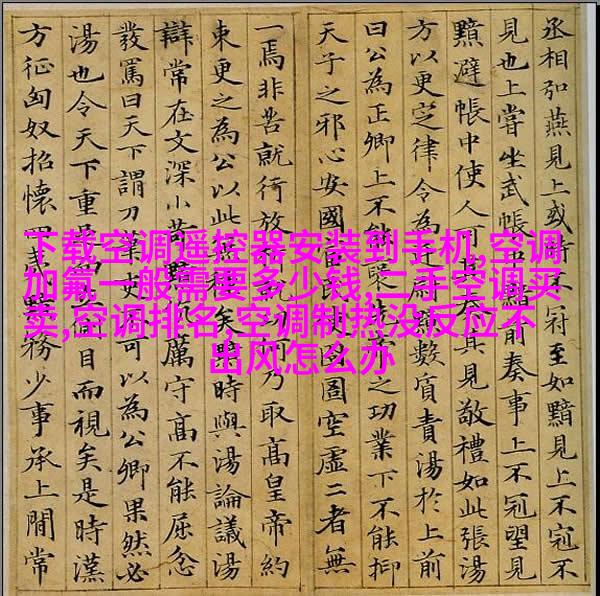 丞相弘燕見上或時不冠至如黯見上不冠不
見也上嘗坐武帳中黯前奏事上不冠望見
黯避帳中使人可其奏其見敬禮如此張湯
方以更定律令為數質責湯於上前
曰公為正卿上不能襃之功業下不能抑
天子之邪心安國富民囹圄空虛二者無
一焉非苦就行放何乃取高皇帝約
束更之為公以此矣黯時與湯論議湯
辯常在文深小苛黯伉厲守高不能屈忿
發罵曰天下謂刀筆吏可以為公卿果然必
湯也令天下重足側目而視矣是時漢
方征匈奴招懷四夷黯務少事承上閒常
下载空调遥控器安装到手机,空调
加氟一般需要多少钱,二手空调买
卖,空调排名,空调制热没反应不
出风怎么办